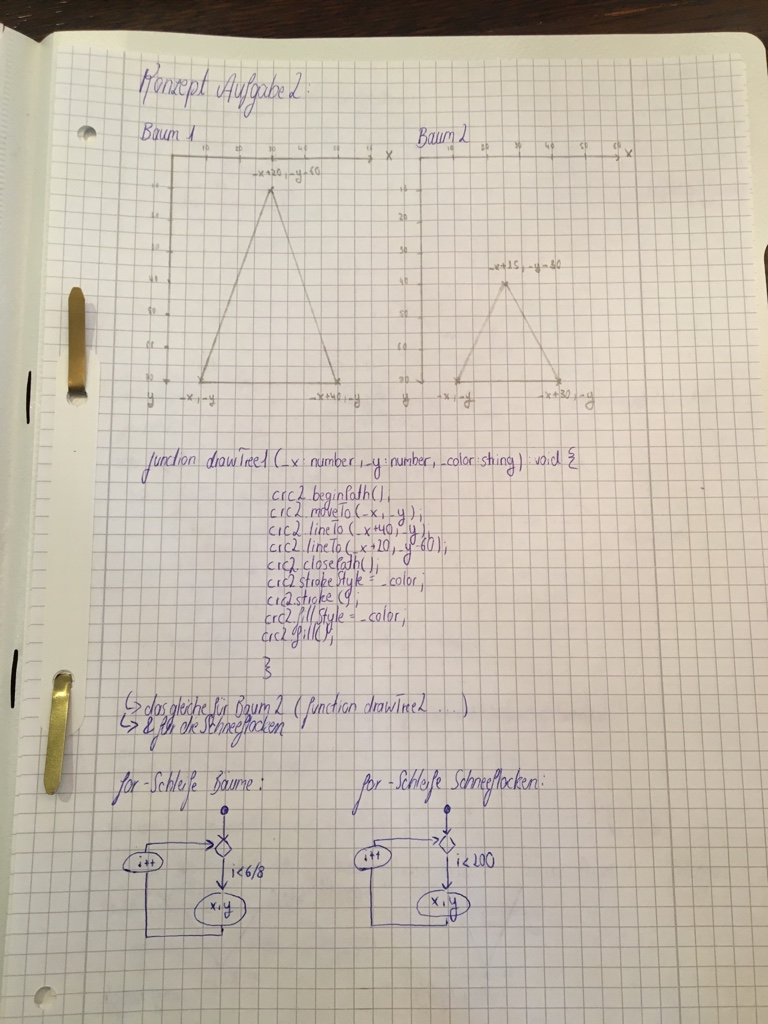 Konzept Aufgabe 2:
Baum 1
Baum 2
10 20 30 40 50 x
10 20 30 40 50 60 x
_x+20, _y-60
10
20
30
40
50
60
70
y
_x, _y
_x+40, _y
10
20
30
40
50
60
70
y
_x+15, _y-30
_x, _y
_x+30, _y
function drawTree1 (_x: number, _y: number, _color: string): void {
crc2.beginPath();
crc2.moveTo(_x, _y);
crc2.lineTo(_x+40, _y);
crc2.lineTo(_x+20, _y-60);
crc2.closePath();
crc2.strokeStyle = _color;
crc2.stroke();
crc2.fillStyle = _color;
crc2.fill();
}
↳ das gleiche für Baum 2 (function drawTree2 ....)
↳ & für die Schneeflocken
for-Schleife Bäume:
for-Schleife Schneeflocken:
i++
i<6/8
x,y
i++
i<200
x,y